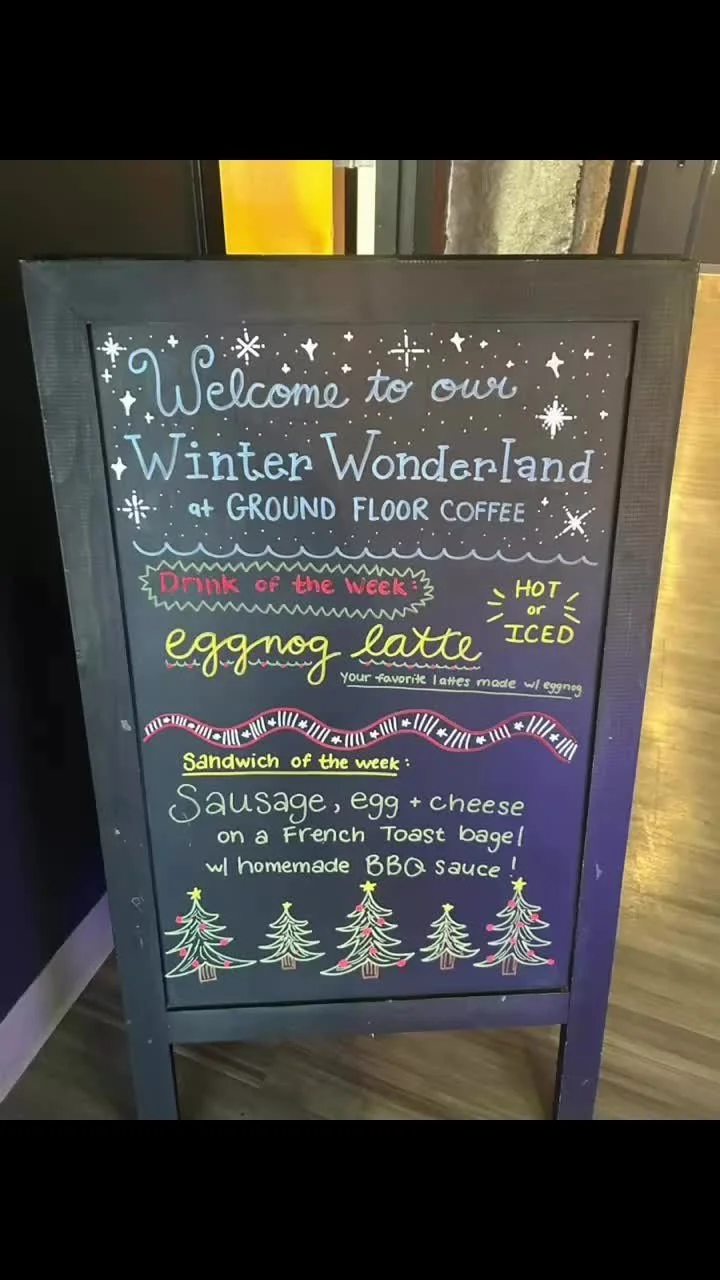 Welcome to our
Winter Wonderland
at GROUND FLOOR COFFEE
Drink of the week:
HOT
or
ICED
eggnog latte
your favorite lattes made w/ eggnog
Sandwich of the week:
Sausage, egg + cheese
on a French Toast bagel
w/ homemade BBQ sauce!